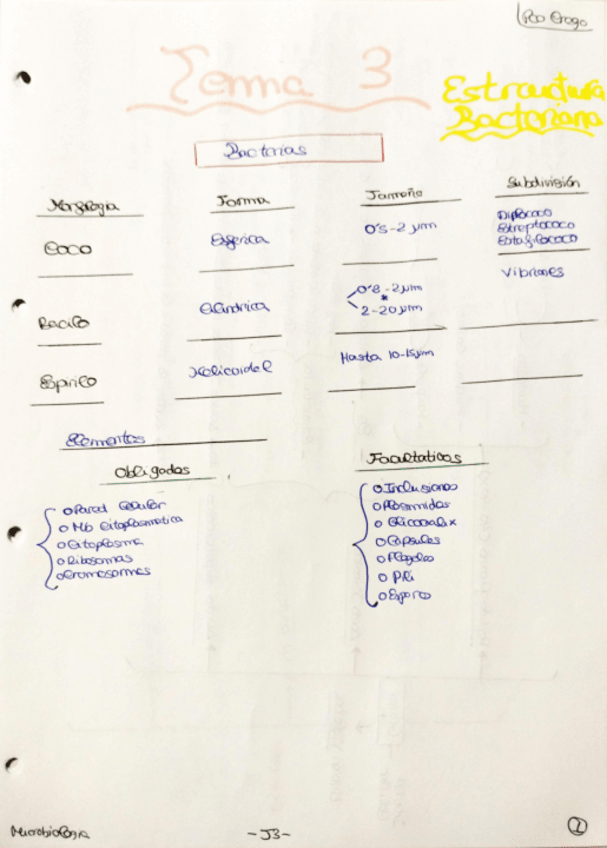 Tema 3
Estructura
Bacteriana
Bacterias
Morfología
Forma
Tamaño
Subdivisión
Coco
Esférica
0's-2 µm
Diplococo
Estreptococo
Estafilococo
Bacilo
Cilíndrica
0'8-2µm
*
2-20µm
Vibriones
Espirilo
Helicoidal
Hasta 10-15µm
Elementos
Obligados
o Pared Celular
o Mb Citoplasmatica
o Citoplasma
o Ribosomas
o Cromosomas
Facultativos
o Inclusiones
o Plasmidos
o Glicocalix
o Capsulas
o Flagelos
o Pili
o Esporas
Microbiología
-J3-